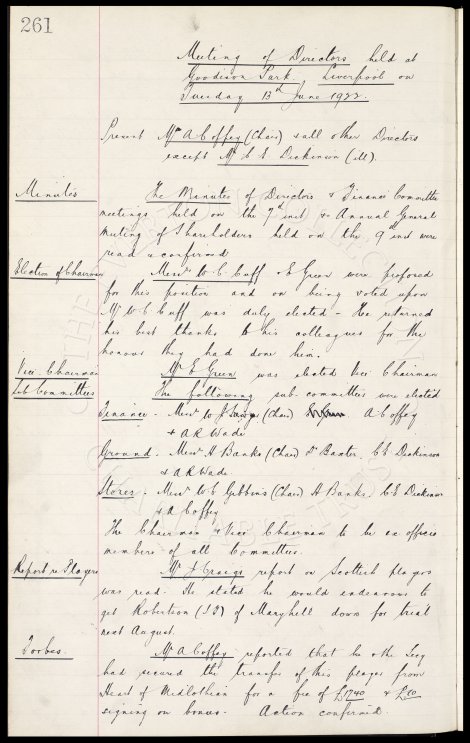 261
Meeting of Directors held at
Goodison Park, Liverpool on
Tuesday 13th June 1922.
Present Mr A Coffey (Chair) & all other Directors
except Mr C E Dickinson (ill).
Minutes
The Minutes of Directors & Finance Committee
meetings held on the 7th inst & Annual General
Meeting of Shareholders held on the 9th inst were
read & confirmed
Election of Chairman
Messrs W C Cuff & E Green were proposed
for this position and on being voted upon
Mr W C Cuff was duly elected - He returned
his best thanks to his colleagues for the
honour they had done him.
Vice-Chairman
Mr E Green was elected Vice Chairman
Sub Committees
The following sub-committees were elected
Finance - Messrs W J (Chair) A Coffey
& A R Wade
Ground. Messrs H Banks (Chair) Dr Baxter, C E Dickinson
& A R Wade
Stores. Messrs W C Gibbins (Chair) H Banks, C E Dickinson
& A Coffey
The Chairman & Vice Chairman to be ex officio
members of all Committees.
Report re Players
Mr J Craigs report on Scottish players
was read. He stated he would endeavour to
get Robertson of Maryhill down for trial
next August.
Forbes.
Mr A Coffey reported that he & the Secy
had secured the transfer of this player from
Heart of Midlothian for a fee of £1740 &
signing on bonus. Action confirmed.